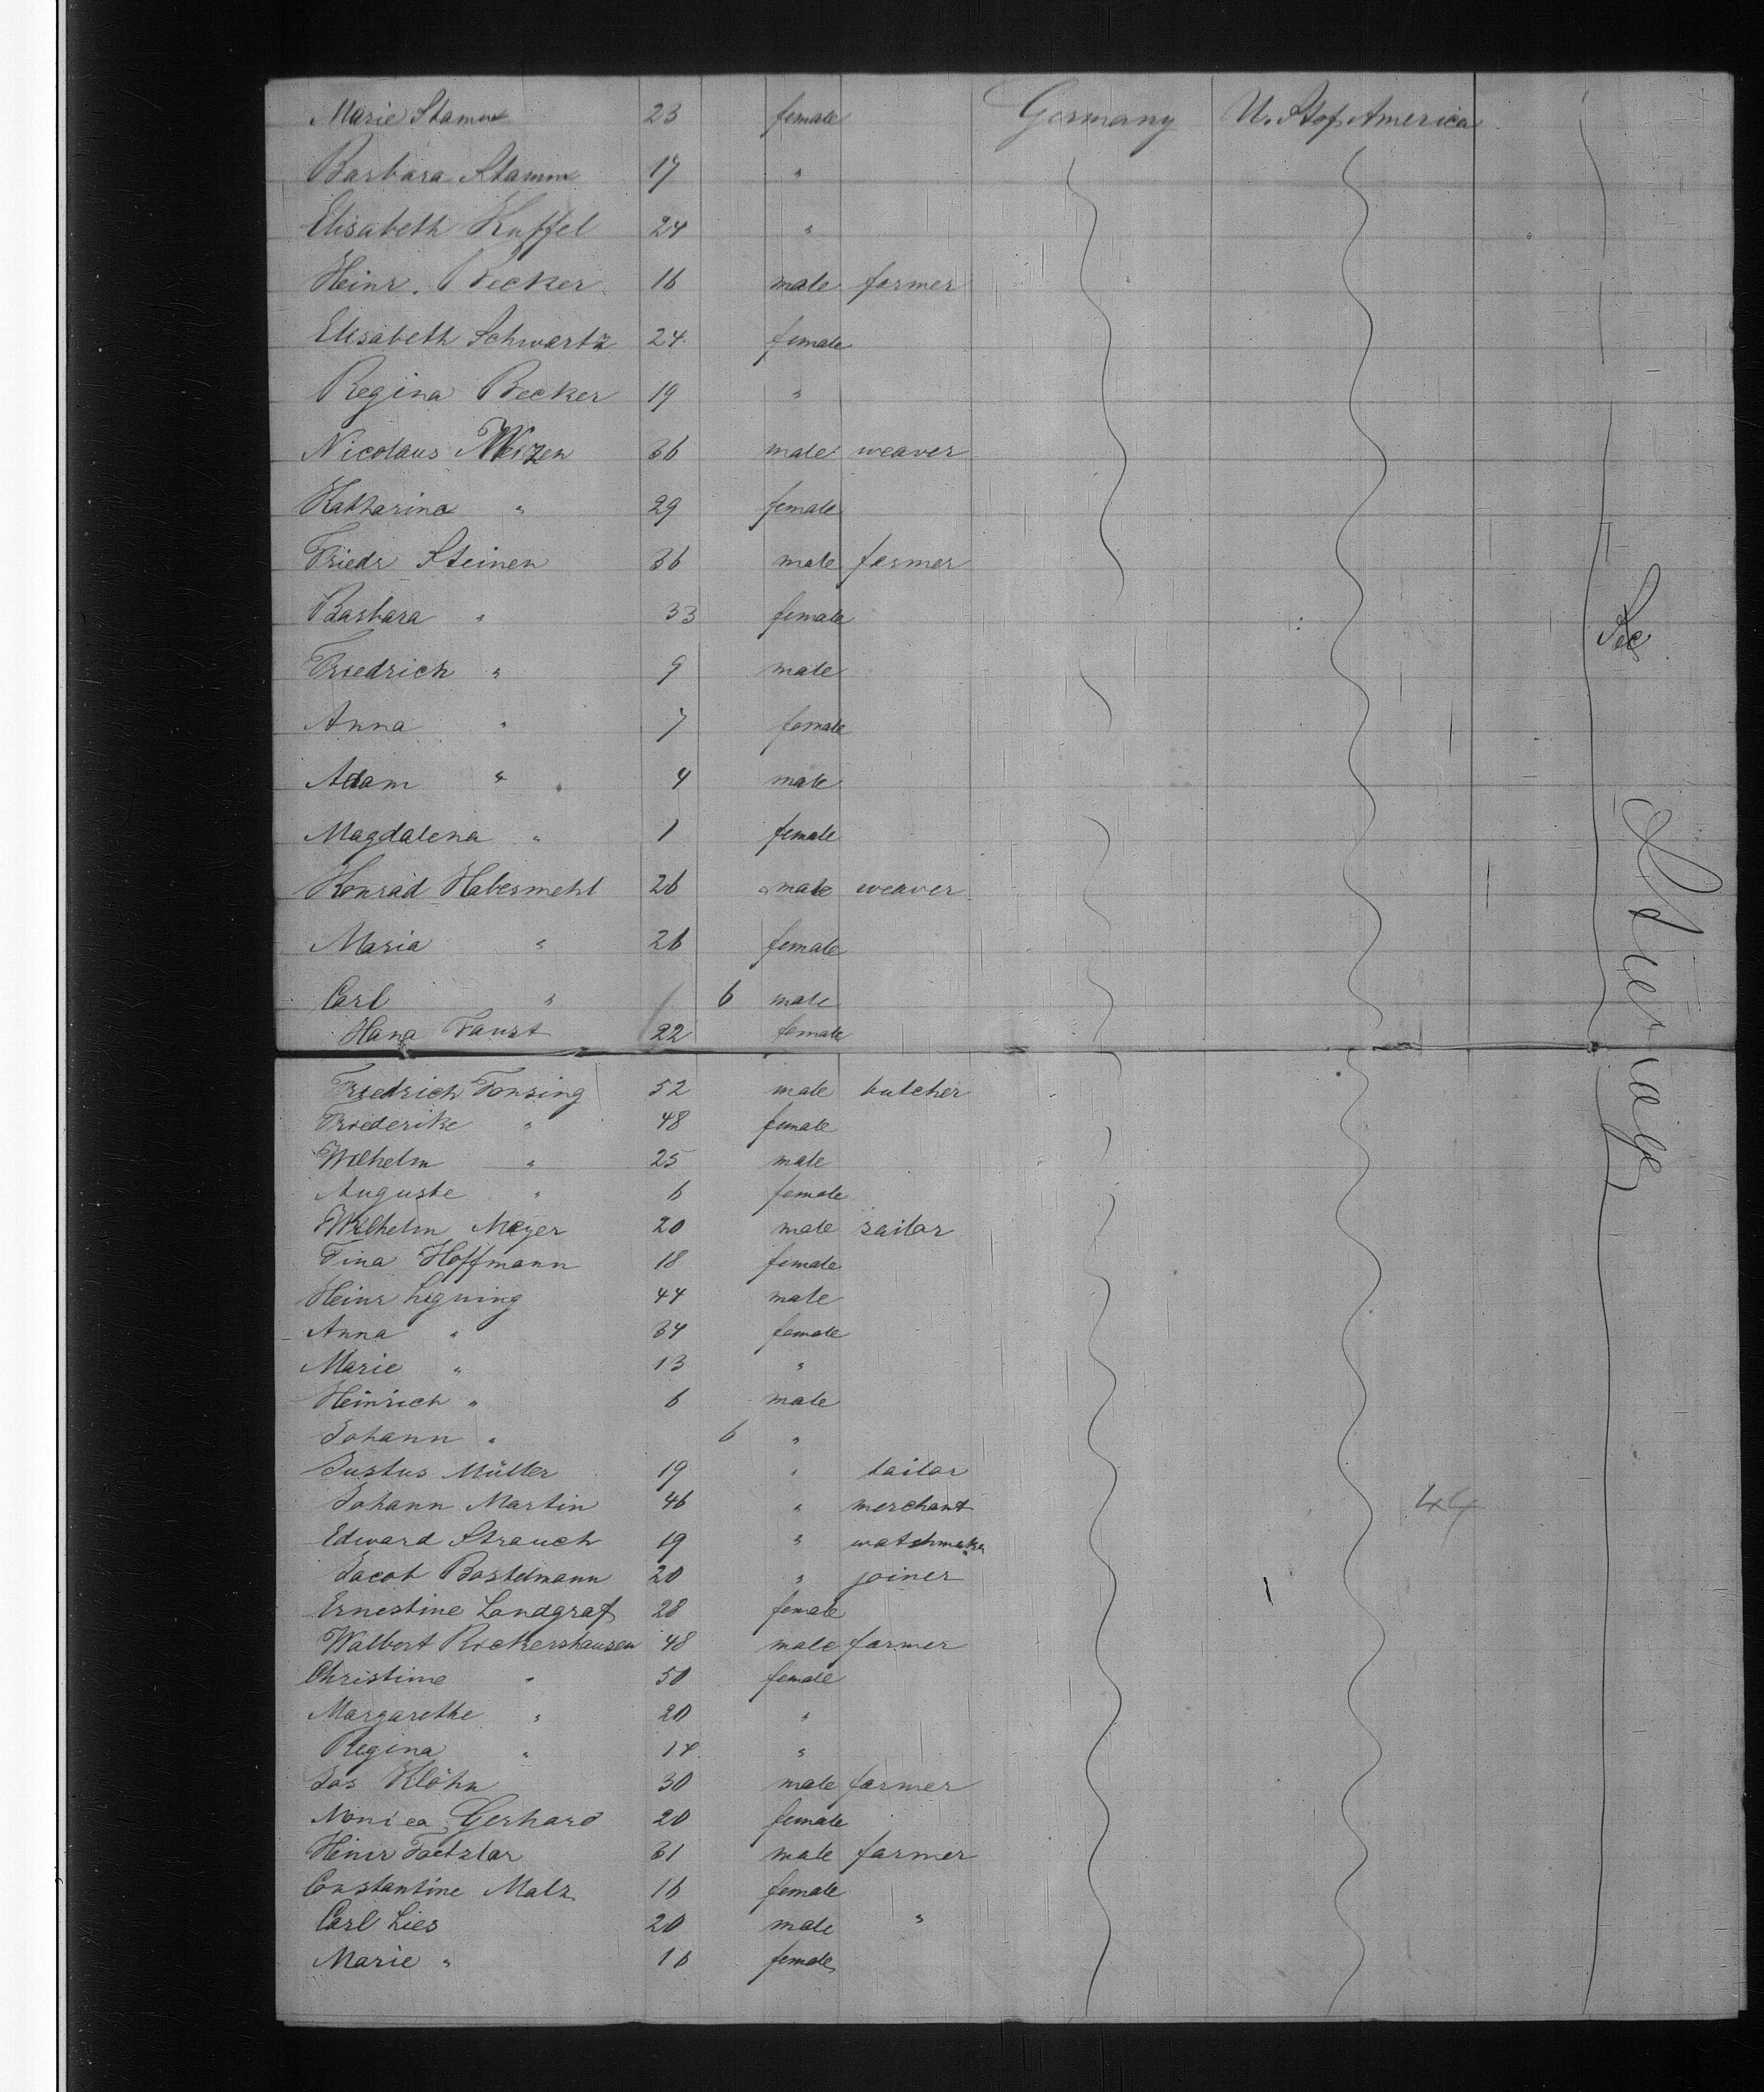 Marie Stamm 23 female Germany U. St of America
Barbara Stamm 17 "
Elisabeth Kuffel 24 "
Heinr. Becker 16 male farmer
Elisabeth Schwartz 24 female
Regina Becker 19 "
Nicolaus 36 male weaver
Katharina " 29 female
Friedr Steinen 36 male farmer
Barbara " 33 female
Friedrich " 9 male
Anna " 7 female
Adam " 4 male
Magdalena " 1 female
Konrad Habermehl 26 male weaver
Maria " 26 female
Carl " 6 male
Hana Faust 22 female
Friedrich Tonsing 52 male butcher
Friederike " 48 female
Wilhelm " 25 male
Auguste " 6 female
Wilhelm Meyer 20 male sailor
Tina Hoffmann 18 female
Heinr 44 male
Anna " 34 female
Marie " 13 "
Heinrich " 6 male
Johann " 6 "
Justus Müller 19 " tailor
Johann Martin 46 " merchant
Edward Strauch 19 " watchmaker
Jacob Bostelmann 20 " joiner
Ernestine Landgraf 28 female
Walbert Rickershausen 48 male farmer
Christine " 50 female
Margarethe " 20 "
Regina " 14 "
Jos Klöhn 30 male farmer
Monica Gerhard 20 female
Heinr 31 male farmer
Constantine Malz 16 female
Carl Lies 20 male "
Marie " 16 female
44